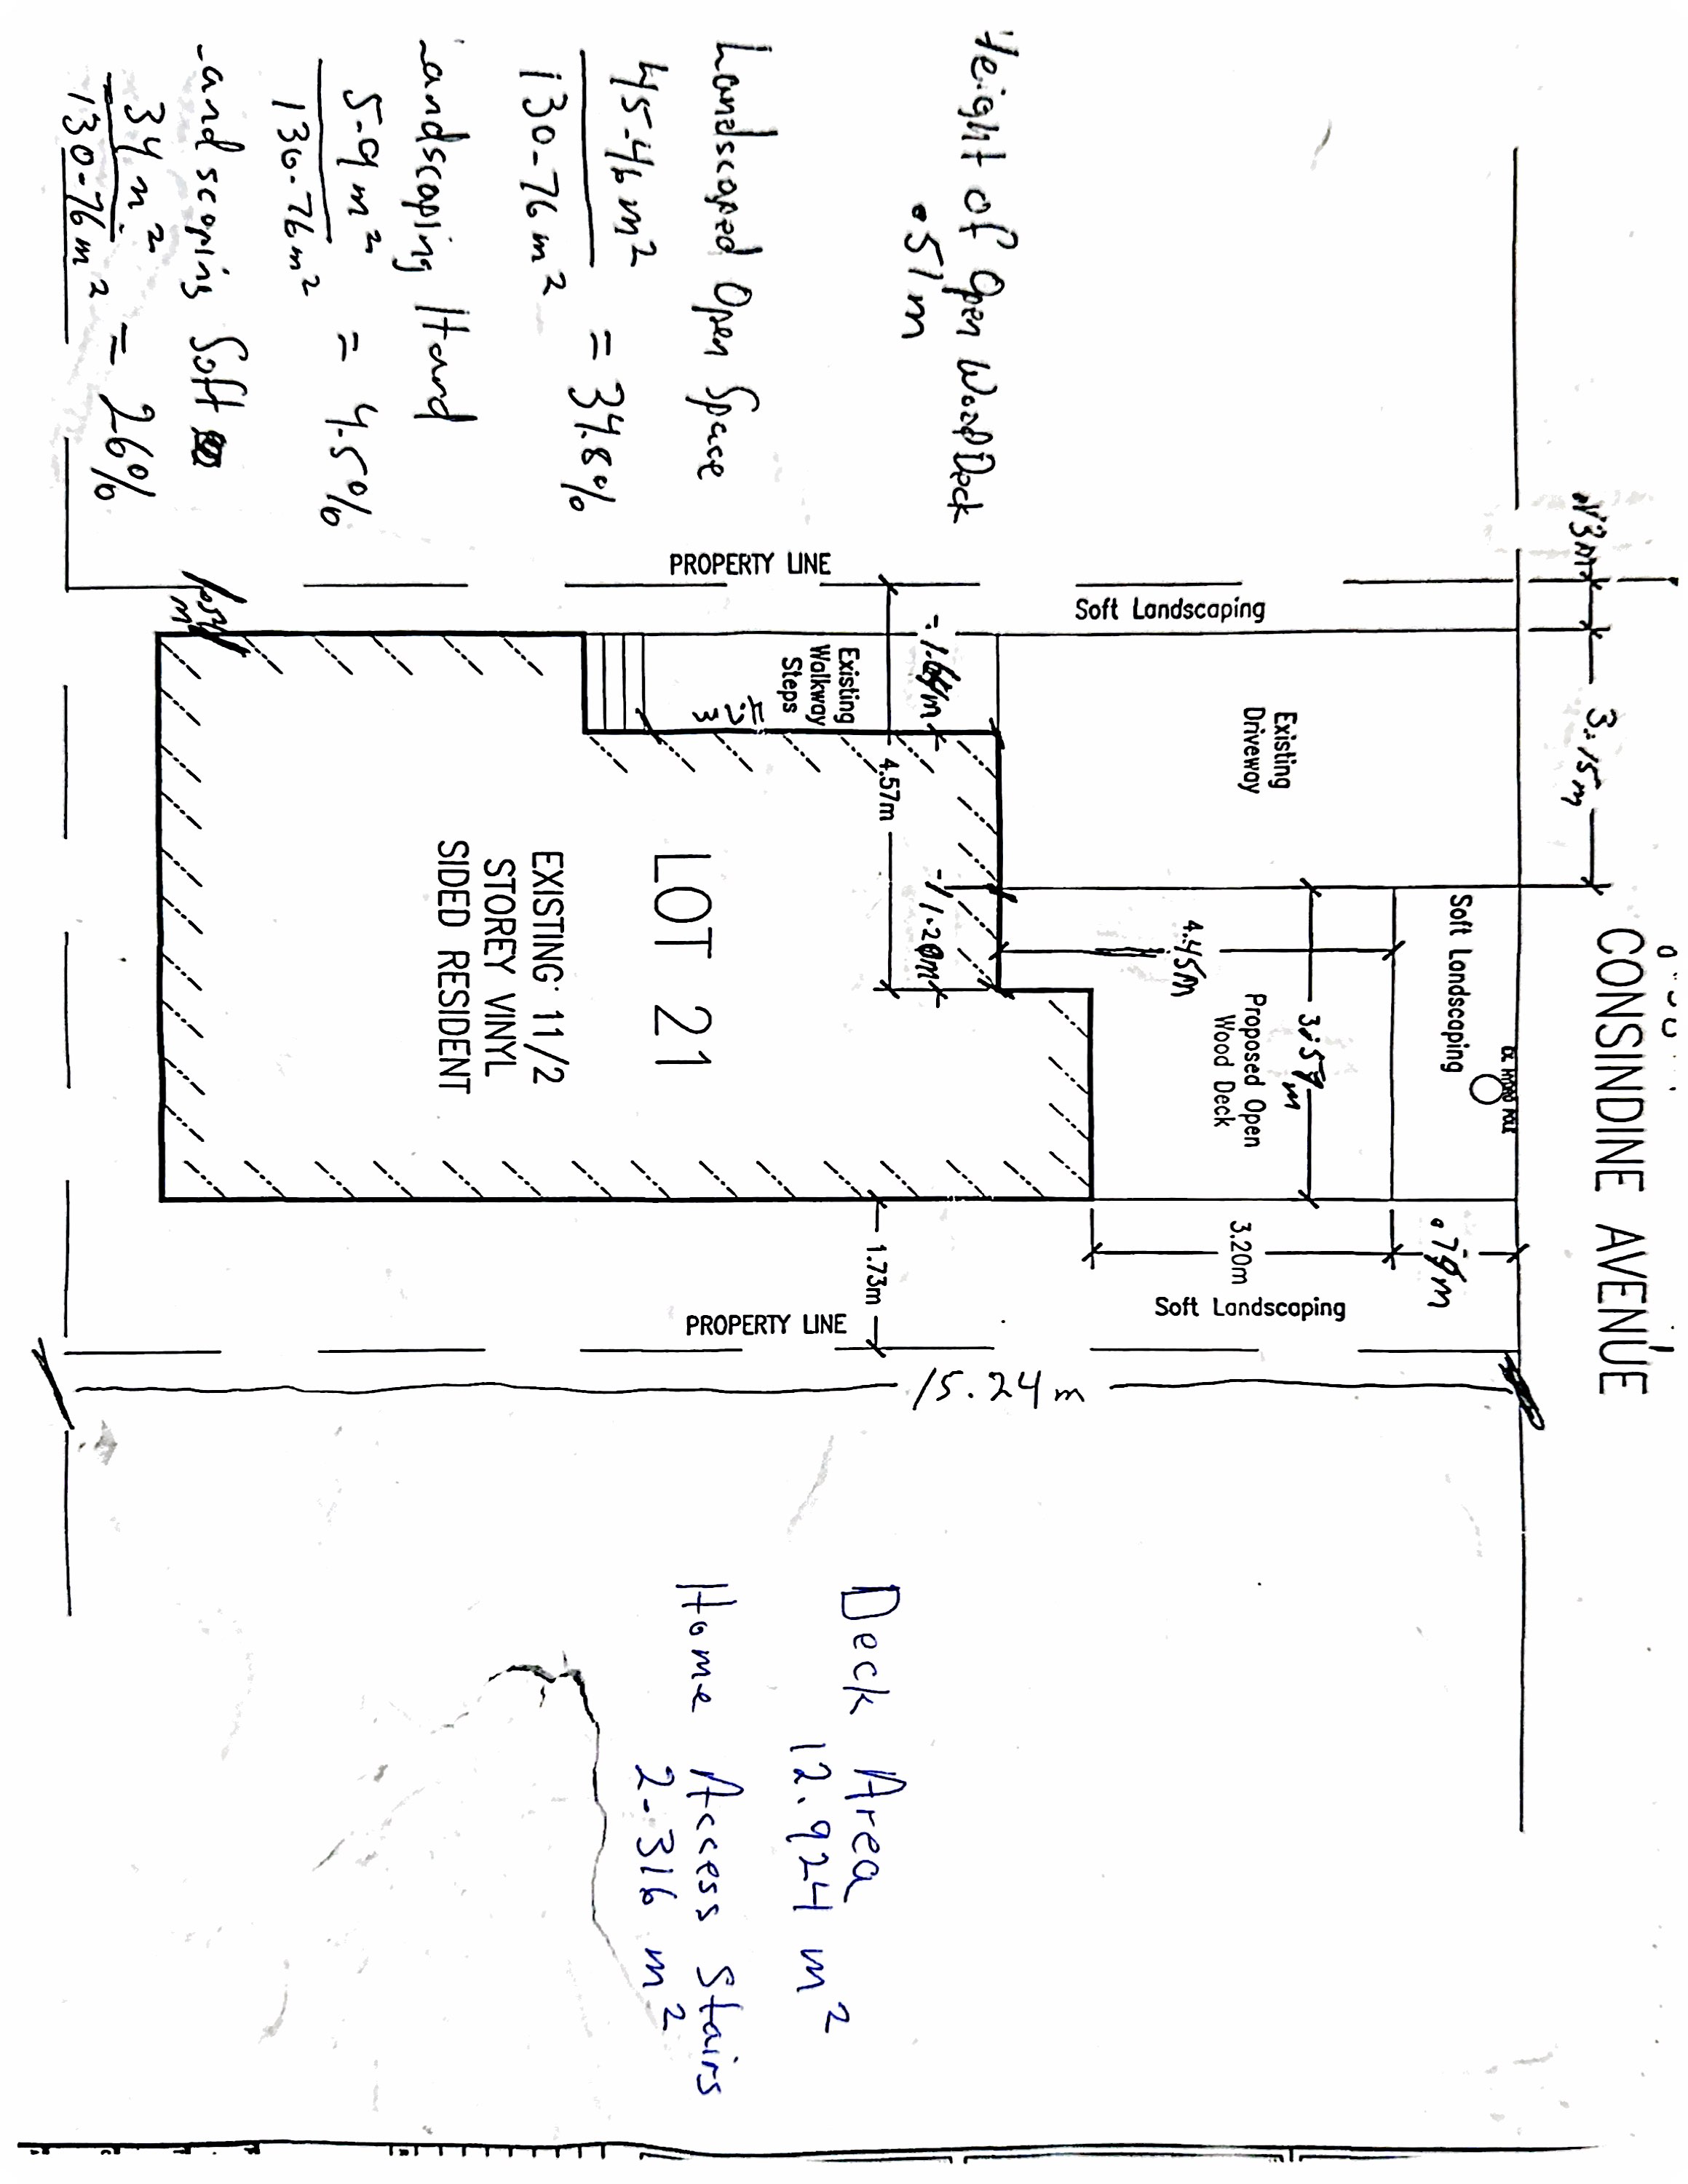 CONSINDINE AVENUE
3.15m
EX. HYDRO POLE
Soft Landscaping
.79m
Soft Landscaping
Soft Landscaping
Existing
Driveway
4.45m
3.59m
Proposed Open
Wood Deck
3.20m
PROPERTY LINE
PROPERTY LINE
1.64m
1.20m
4.57m
1.73m
Existing
Walkway
Steps
LOT 21
EXISTING: 11/2
STOREY VINYL
SIDED RESIDENT
15.24m
Height of Open Wood Deck
.51m
Landscaped Open Space
45.46m²
130.76m² = 34.8%
Landscaping Hard
5.9m²
130.76m² = 4.5%
Landscaping Soft
34m²
130.76m² = 26%
Deck Area
12.924 m²
Home Access Stairs
2.316 m²